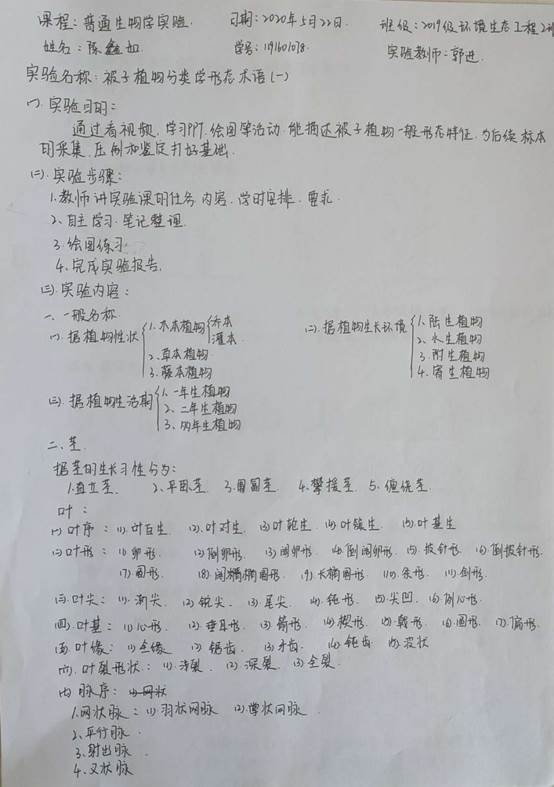 课程：普通生物学实验 日期：2020年5月22日 班级：2019级环境生态工程2班
姓名：陈鑫如 学号：119160178 实验教师：郭进
实验名称：被子植物分类学形态术语（一）
（一）实验目的：
通过看视频，学习PPT，绘图等活动，能描述被子植物一般形态特征，为后续标本
的采集、压制和鉴定打好基础。
（二）实验步骤：
1.教师讲实验课的任务、内容、学时安排、要求
2、自主学习、笔记整理
3.绘图练习
4、完成实验报告。
（三）实验内容：
一、一般名称
（一）据植物性状 1.木本植物 乔本 灌本 2、草本植物 3.藤本植物
（二）据植物生长环境 1、陆生植物 2、水生植物 3.附生植物 4.寄生植物
（三）据植物生活期 1、一年生植物 2、二年生植物 3、多年生植物
二、茎
据茎的生长习性分为：
1.直立茎 2、平卧茎 3.匍匐茎 4.攀援茎 5、缠绕茎
叶：
（一）叶序：(1)叶互生 (2)叶对生 (3)叶轮生 (4)叶簇生 (5)叶基生
（二）叶形：(1)卵形 (2)倒卵形 (3)阔卵形 (4)倒阔卵形 (5)披针形 (6)倒披针形
(7)圆形 (8)阔椭圆形 (9)长椭圆形 (10)条形 (11)剑形
（三）叶尖：(1)渐尖 (2)锐尖 (3)尾尖 (4)钝形 (5)尖凹 (6)倒心形
（四）叶基：(1)心形 (2)垂耳形 (3)箭形 (4)楔形 (5)戟形 (6)圆形 (7)偏形
（五）叶缘：(1)全缘 (2)锯齿 (3)牙齿 (4)钝齿 (5)波状
（六）叶裂形状：(1)浅裂 (2)深裂 (3)全裂
（七）脉序：
1.网状脉：(1)羽状网脉 (2)掌状网脉
2、平行脉
3、射出脉
4.叉状脉